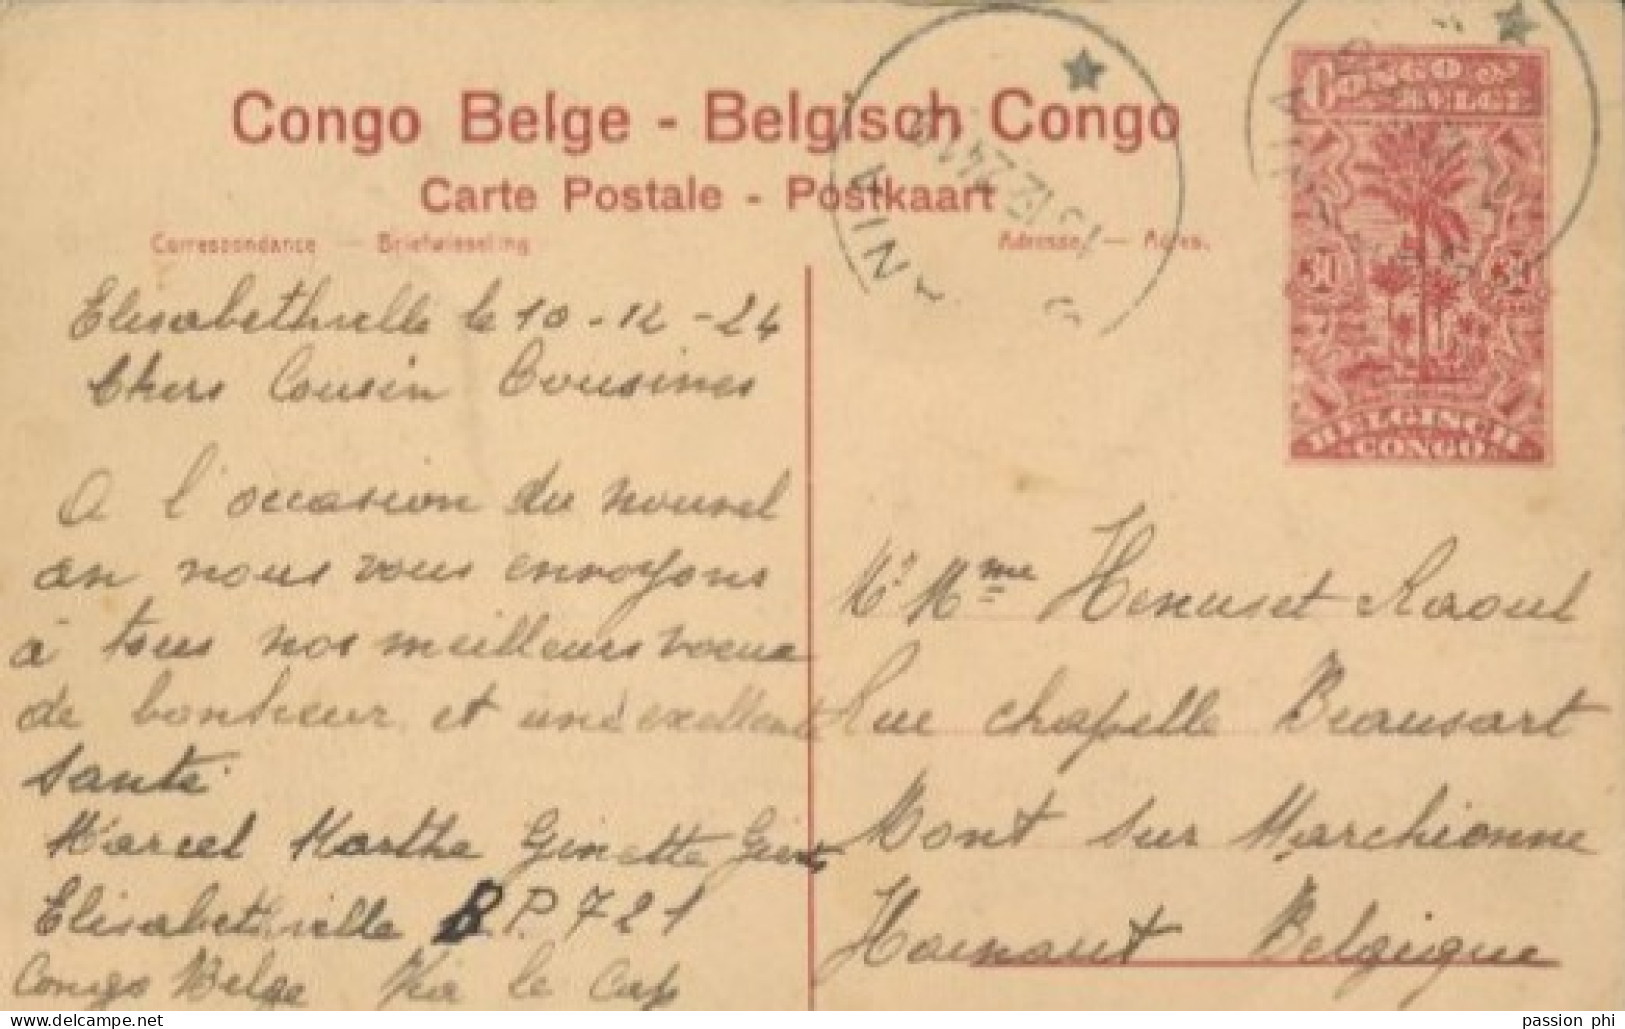 Congo Belge - Belgisch Congo
Carte Postale - Postkaart
Correspondance — Briefwisseling
Adresse — Adres.
CONGO
BELGE
30 30
BELGISCH
CONGO
Elisabethville le 10-12-24
Chers Cousin Cousines
A l'occasion du nouvel
an nous vous envoyons
à tous nos meilleurs voeux
de bonheur et une excellente
santé
Marcel Marthe Ginette
Elisabethville B.P. 721
Congo Belge Via le Cap
Mr Mme Henuset Raoul
Rue chapelle Beaussart
Mont sur Marchienne
Hainaut Belgique
passion phi